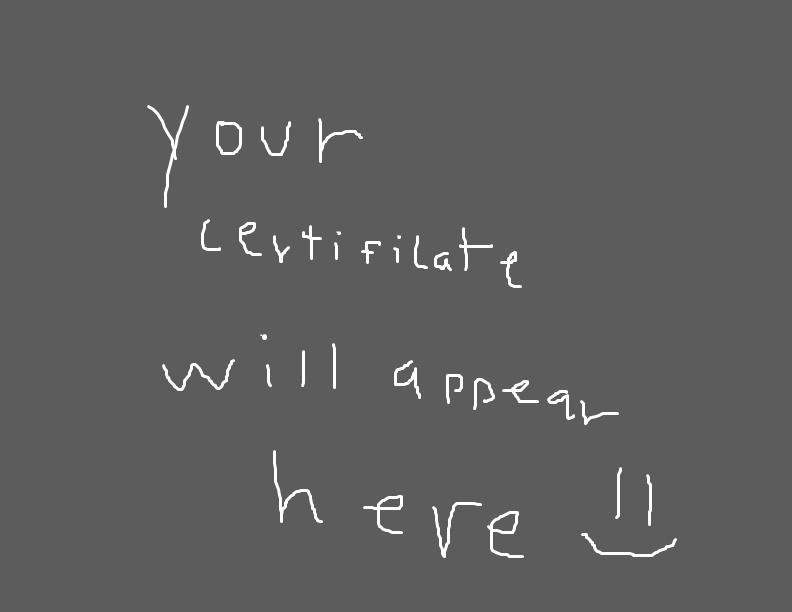 your
certificate
will appear
here